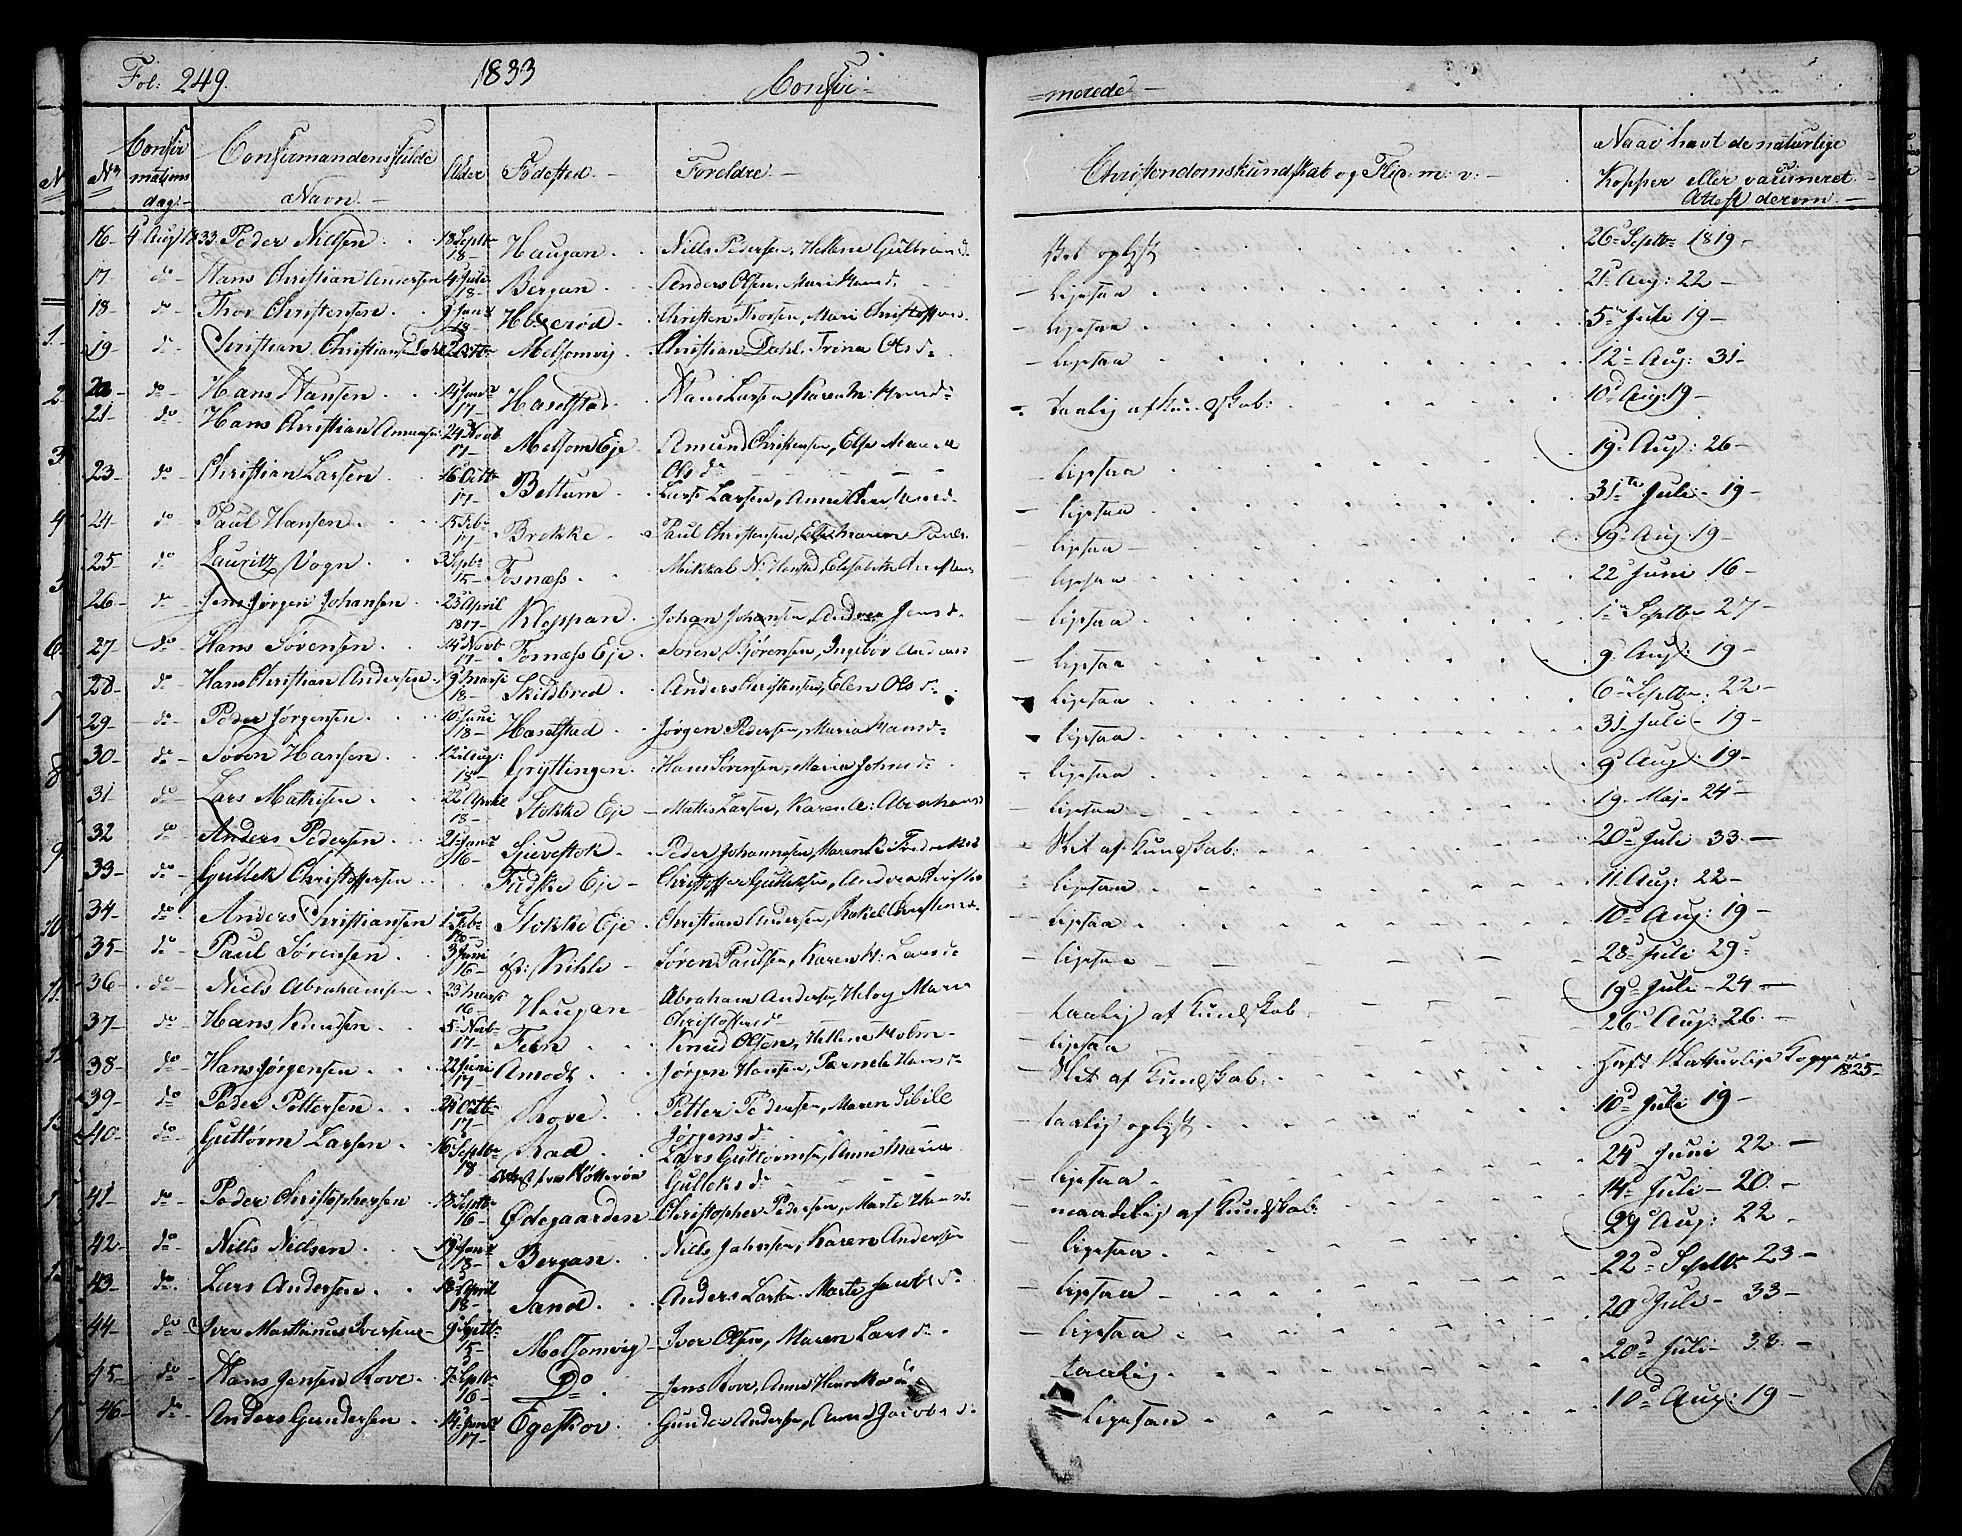 Fol: 249. 1833 Confir=
=merede
No Confirmations dag Confirmandens fulde Navn Alder Fødested Foreldre Christendomskundskab og Flid m: v: Naar havt de naturlige Kopper eller vaccineret Attest derom
16 4 Aug 1833 Peder Nielsen 18 Septb 18 Haugan Niels Pedersen, Hellene Gulbrand d. oplyst 26 Septb 1819
17 do Hans Christian Andersen 4 Juli 18 Bergan Anders Olsen, Mari Hans d. ligesaa 21 Aug: 22
18 do Thor Christensen 9 Janr 18 Christen Thorsen, Mari Christoffer ligesaa 5 Juli 19
19 do Christian Christians: Dahl 2 Octb Melsomvig Christian Dahl, Trina Ols d. ligesaa 12 Aug: 31
20 do Hans Hansen 14 Janr 17 Haselstad Hans Larsen Karen M: Hans d. taalig af Kundskab: 10 Aug: 19
21 do Hans Christian Amundsen 24 Novb 17 Melsom Eje Amund Christensen, Else Maria Ols d. ligesaa 19 Aug: 26
23 do Christian Larsen 16 Octb 17 Bettum Lars Larsen, Anne d. ligesaa 31te Juli 19
24 do Paul Hansen 15 Feb 17 Brekke Paul Christensen, Else Maren Pauls ligesaa 19 Aug 19
25 do Lauritz Vogn 3 Septb 15 Fosnæss Mikkal N: Elisabeth ligesaa 22 Juni 16
26 do Jens Jørgen Johansen 23 April 1817 Kloppan Johan Johansen, Andrea Jens d. ligesaa 1 Septb 27
27 do Hans Sørensen 14 Novb 17 Fosnæss Eje Søren Sjørensen, Ingebor Anders ligesaa 9 Aug: 19
28 do Hans Christian Andersen 9 Marts 18 Skildbred Anders Christensen, Elen Ols d. ligesaa 6 Septb: 22
29 do Peder Jørgensen 10 Juni 18 Haselstad Jørgen Pedersen, Maria Hans d. ligesaa 31 Juli 19
30 do Søren Hansen 12 Aug: 18 Gryttingen Hans Sørensen, Maria Johns d. ligesaa 9 Aug: 19
31 do Lars Mathisen 22 April 18 Stokke Eje Mathis Larsen, Karen A: Abrahams ligesaa 19 Maj 24
32 do Anders Pedersen 21 Janr 16 Sjuestok Peder Johannesen, Maren Fredriks Slet af Kundskab: 20 Juli 33
33 do Gullek Christoffersen Fadske Eje Christoffer Gulleksen, Andrea ligesaa 11 Aug: 22
34 do Anders Christiansen 1 Feb 18 Stokke Eje Christian Andersen, Rakel Christens d. ligesaa 10 Aug: 19
35 do Paul Sørensen 3 Juni 16 øst: Kihle Søren Paulsen, Karen H: Lars d. ligesaa 28 Juli 29
36 do Niels Abrahamsen 23 Marts 16 Haugan Abraham Andersen, Heloy Maria Christoffers d. taalig af Kundskab 19 Juli 24
37 do Hans Knudsen 5 Novb 17 Feen Knud Olsen, Hellene Holm ligesaa 26 Aug: 26
38 do Hans Jørgensen 22 Juni 17 Amodt Jørgen Hansen, Pernele Hans d. Slet af Kundskab: Haft Naturlige Kopper 1825
39 do Peder Pettersen 24 Octb 17 Rove Petter Pedersen, Maren Sibile Jørgens d. taalig oplyst 10 Juli 19
40 do Guttorm Larsen 16 Septb 18 Rad Lars Guttormsen, Anne Maria Gulleks d. ligesaa 24 Juni 22
41 do Peder Christophersen 18 Septb 16 Ødegaarden Christopher Pedersen, Marte Hans d. maadelig af Kundskab: 14 Juli 20
42 do Niels Nielsen 19 Janr 18 Bergan Niels Jahnsen, Karen Andersen ligesaa 29 Aug: 22
43 do Lars Andersen 18 April 18 Sand Anders Larsen Marte Jacobs d. ligesaa 22 Septb 23
44 do Iver Marthinus Iversen 9 15 Melsomvig Iver Olsen, Maren Lars d. ligesaa 20 Juli 33
45 do Hans Jensen Rove 7 Septb 16 Do Jens Rove, Anne taalig 20 Juli 33
46 do Anders Gundersen 14 Janr 17 Egeskov Gunder Andersen, Anne Jacobs d. ligesaa 10 Aug: 19